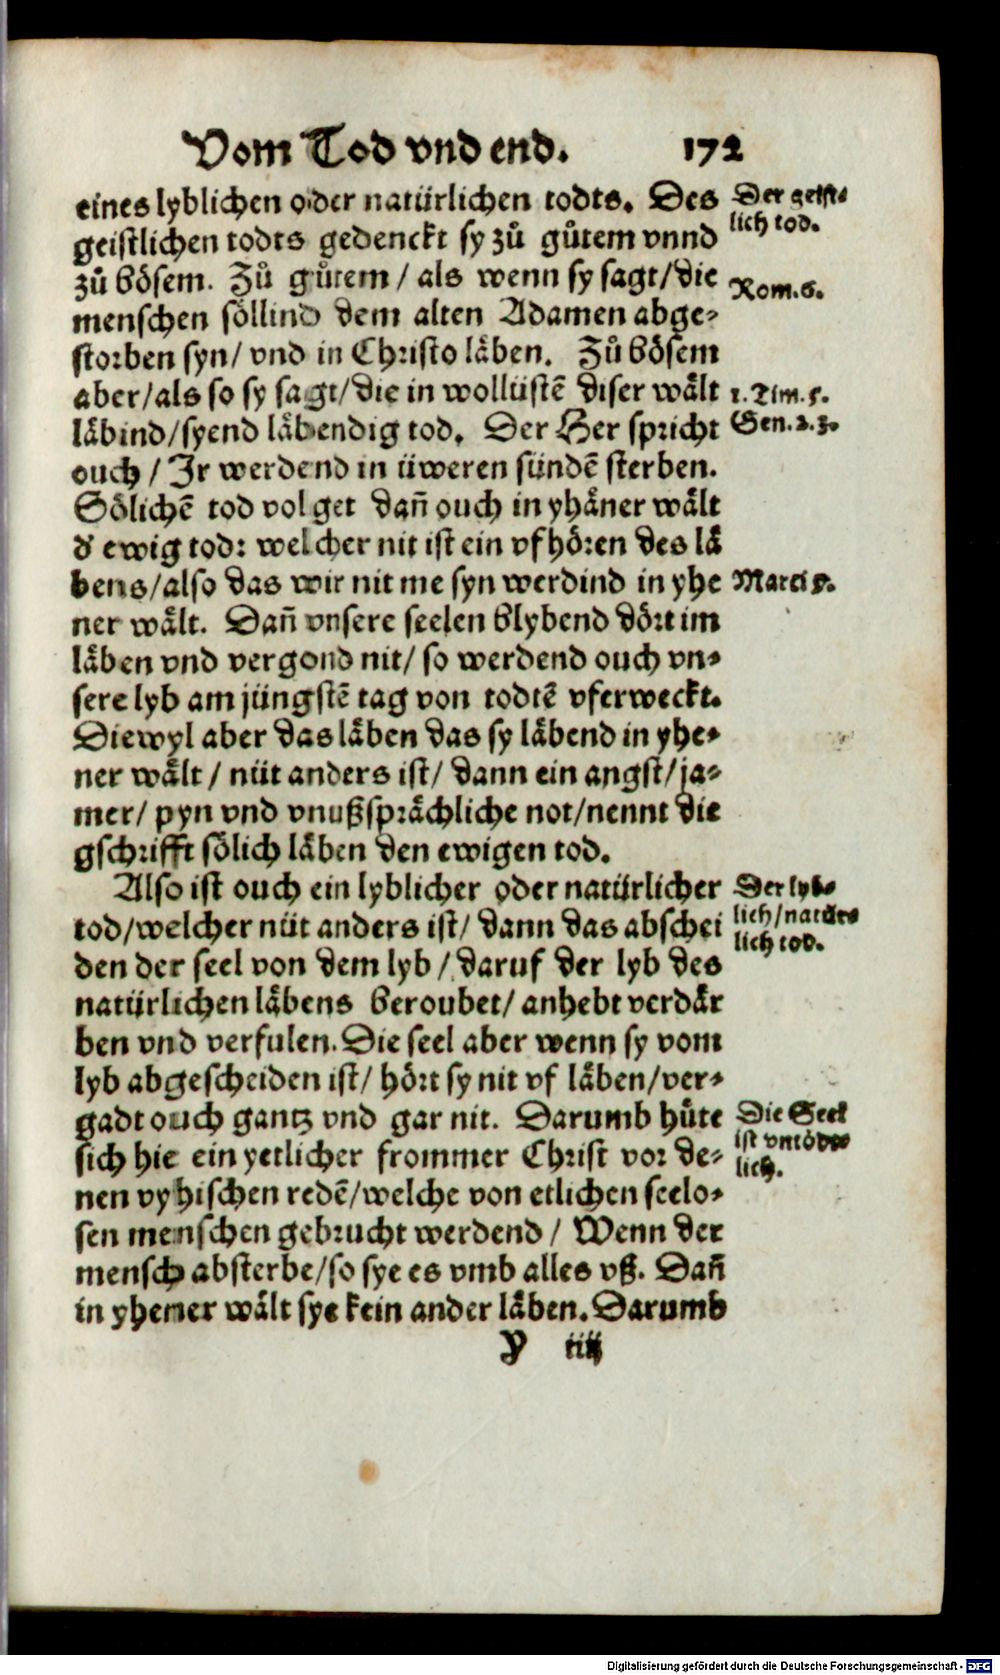 Vom Tod vnd end. 172
eines lyblichen oder natürlichen todts. Des
geistlichen todts gedenckt sy zů gůtem vnnd
zů bösem. Zů gůtem / als wenn sy sagt / die
menschen söllind dem alten Adamen abge-
storben syn / vnd in Christo läben. Zů bösem
aber / als so sy sagt / die in wollüstē diser wält
läbind / syend läbendig tod. Der Her spricht
ouch / Ir werdend in üweren sündē sterben.
Sölichē tod volget dañ ouch in yhäner wält
d' ewig tod: welcher nit ist ein vfhören des lä
bens / also das wir nit me syn werdind in yhe
ner wält. Dañ vnsere seelen blybend dört im
läben vnd vergond nit / so werdend ouch vn-
sere lyb am jüngstē tag von todtē vferweckt.
Diewyl aber das läben das sy läbend in yhe-
ner wält / nüt anders ist / dann ein angst / ja-
mer / pyn vnd vnußsprächliche not / nennt die
gschrifft sölich läben den ewigen tod.
Also ist ouch ein lyblicher oder natürlicher
tod / welcher nüt anders ist / dann das abschei
den der seel von dem lyb / daruf der lyb des
natürlichen läbens beroubet / anhebt verdär
ben vnd verfulen. Die seel aber wenn sy vom
lyb abgescheiden ist / hört sy nit vf läben / ver-
gadt ouch gantz vnd gar nit. Darumb hüte
sich hie ein yetlicher frommer Christ vor de-
nen vyhischen redē / welche von etlichen seelo-
sen menschen gebrucht werdend / Wenn der
mensch absterbe / so sye es vmb alles vß. Dañ
in yhener wält sye kein ander läben. Darumb
Y iiij
Der geist-
lich tod.
Rom. 6.
1. Tim. 5.
Gen. 2. 3.
Marci 9.
Der lyb-
lich / natür-
lich tod.
Die Seel
ist vntöde-
lich.
Digitalisierung gefördert durch die Deutsche Forschungsgemeinschaft - DFG